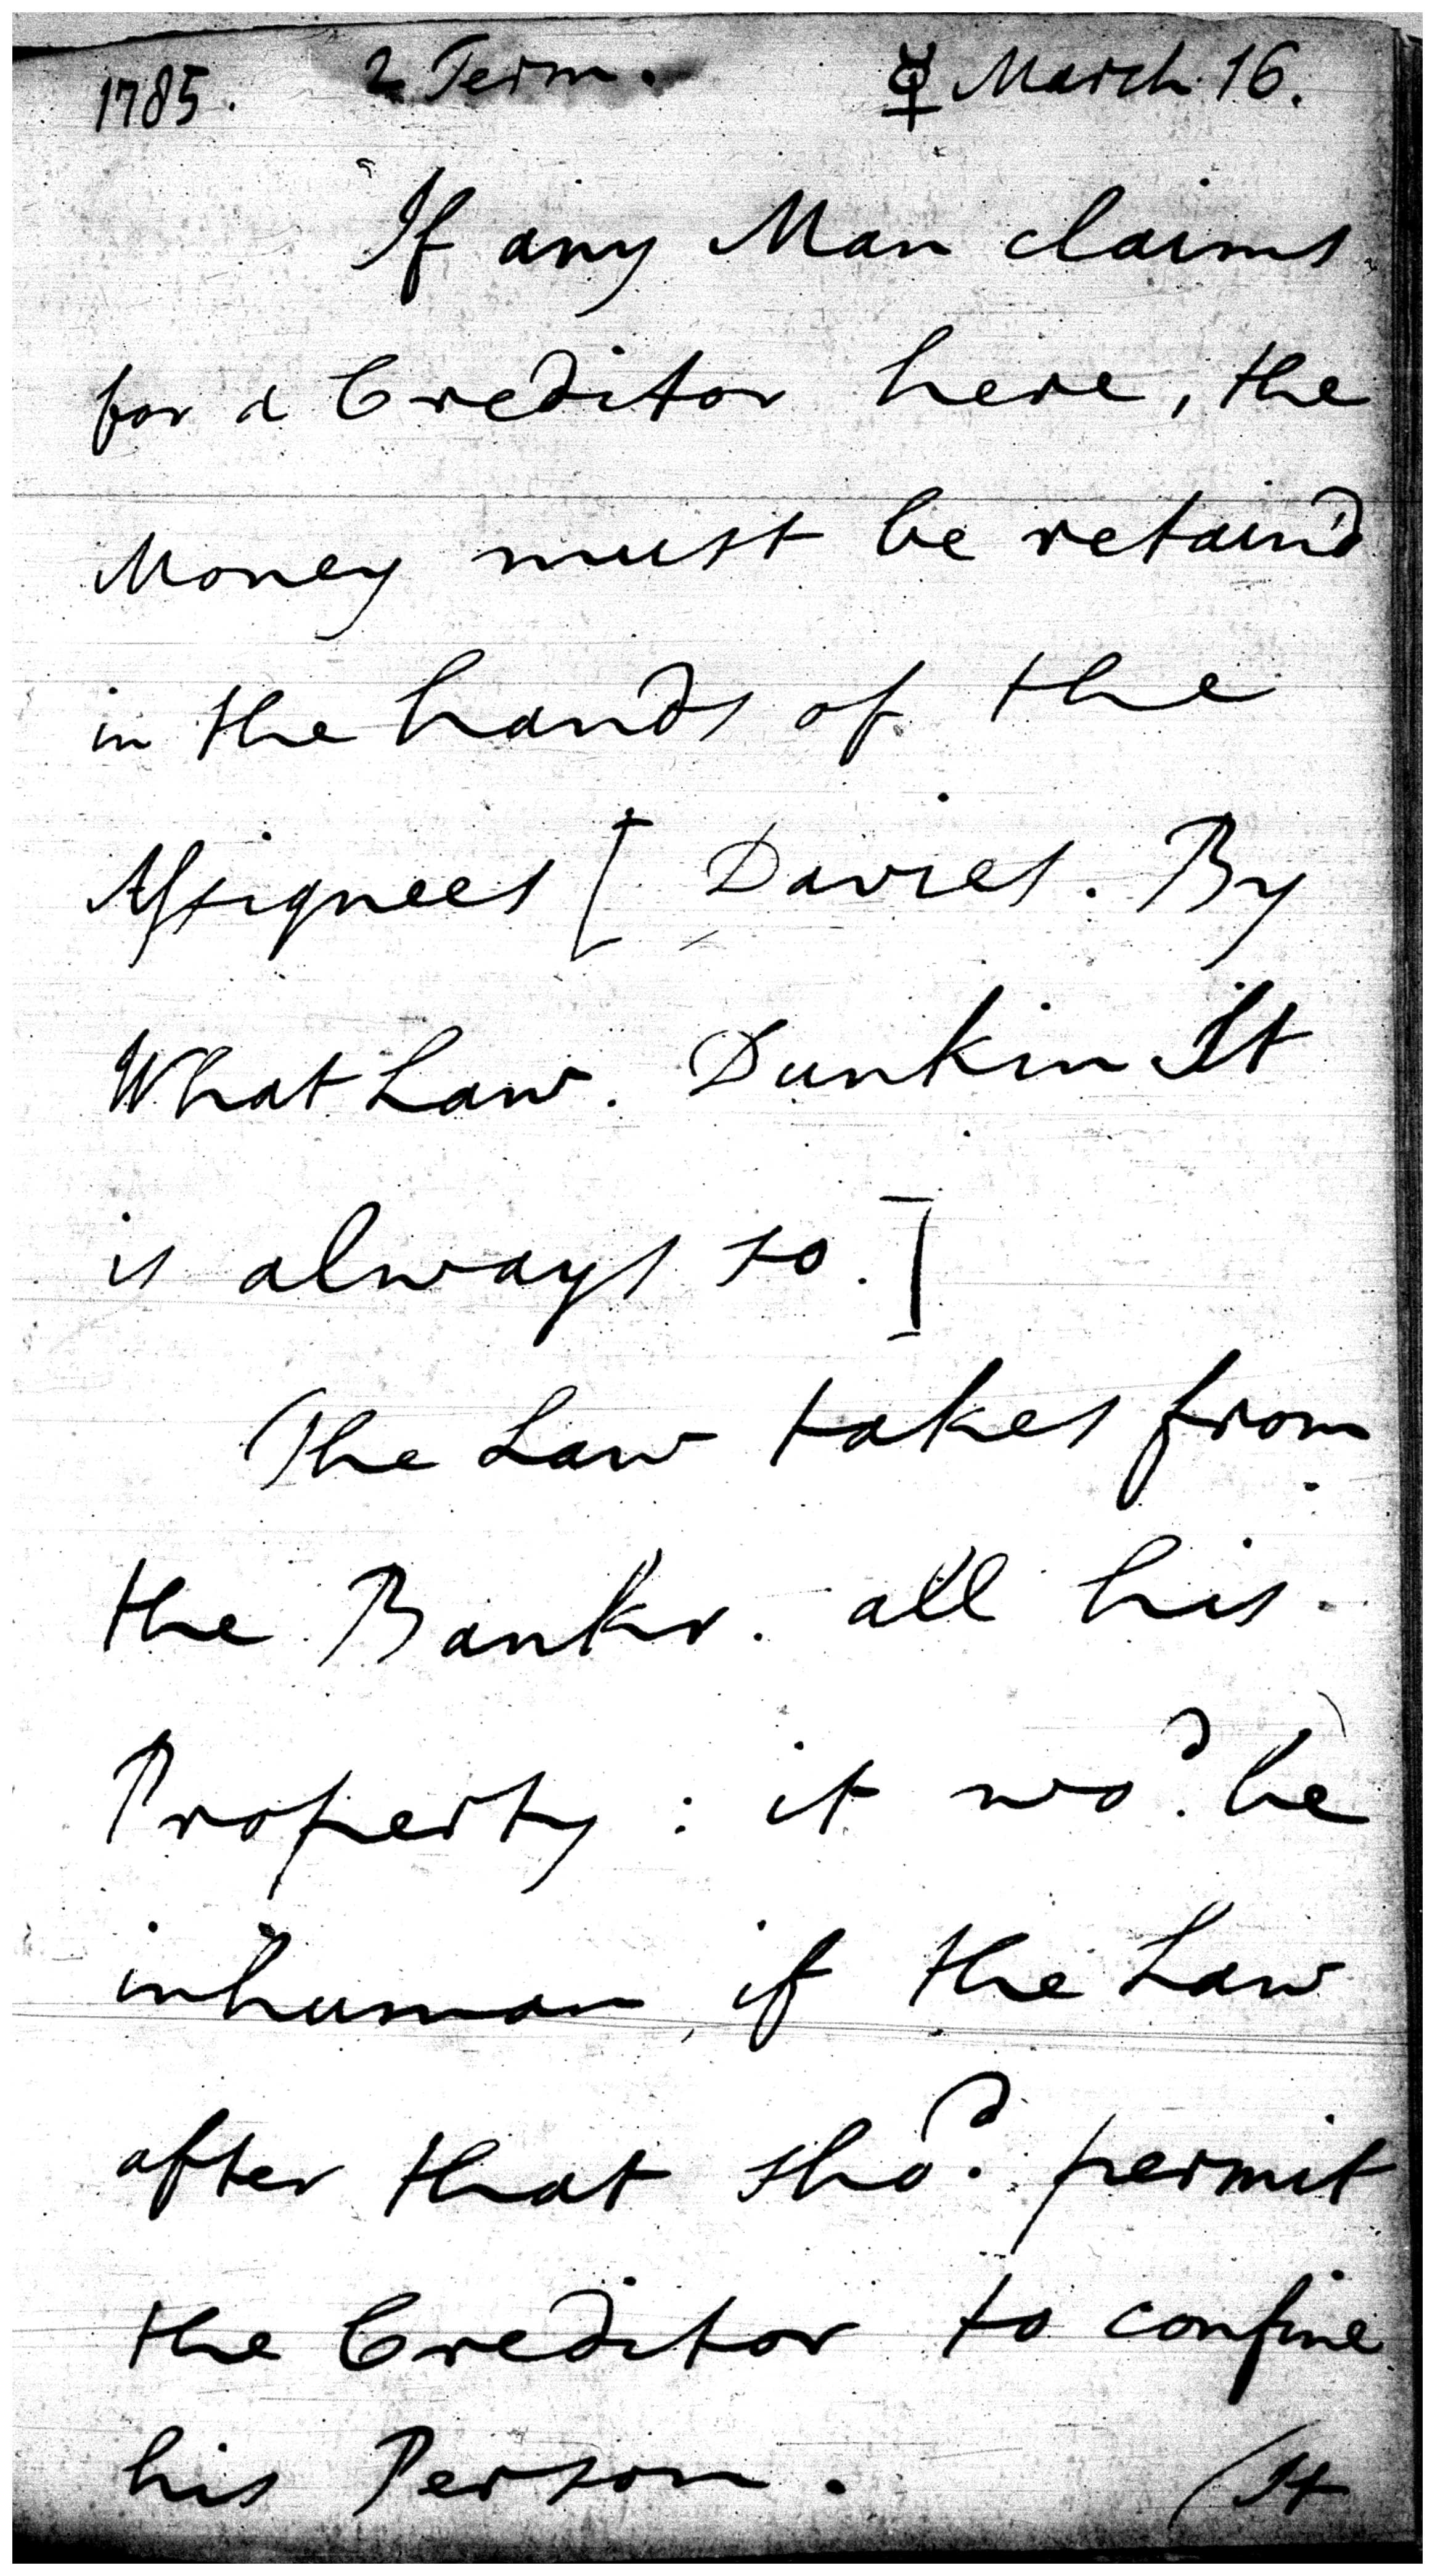 1785. 2 Term. ☿ March 16.
If any Man claims
for a Creditor here, the
Money must be retain'd
in the hands of the
Assignees [ Davies. By
What Law. Dunkin It
is always so. ]
The Law takes from
the Bankr. all his
Property : it wod. be
inhuman, if the Law
after that shod. permit
the Creditor to confine
his Person. (It